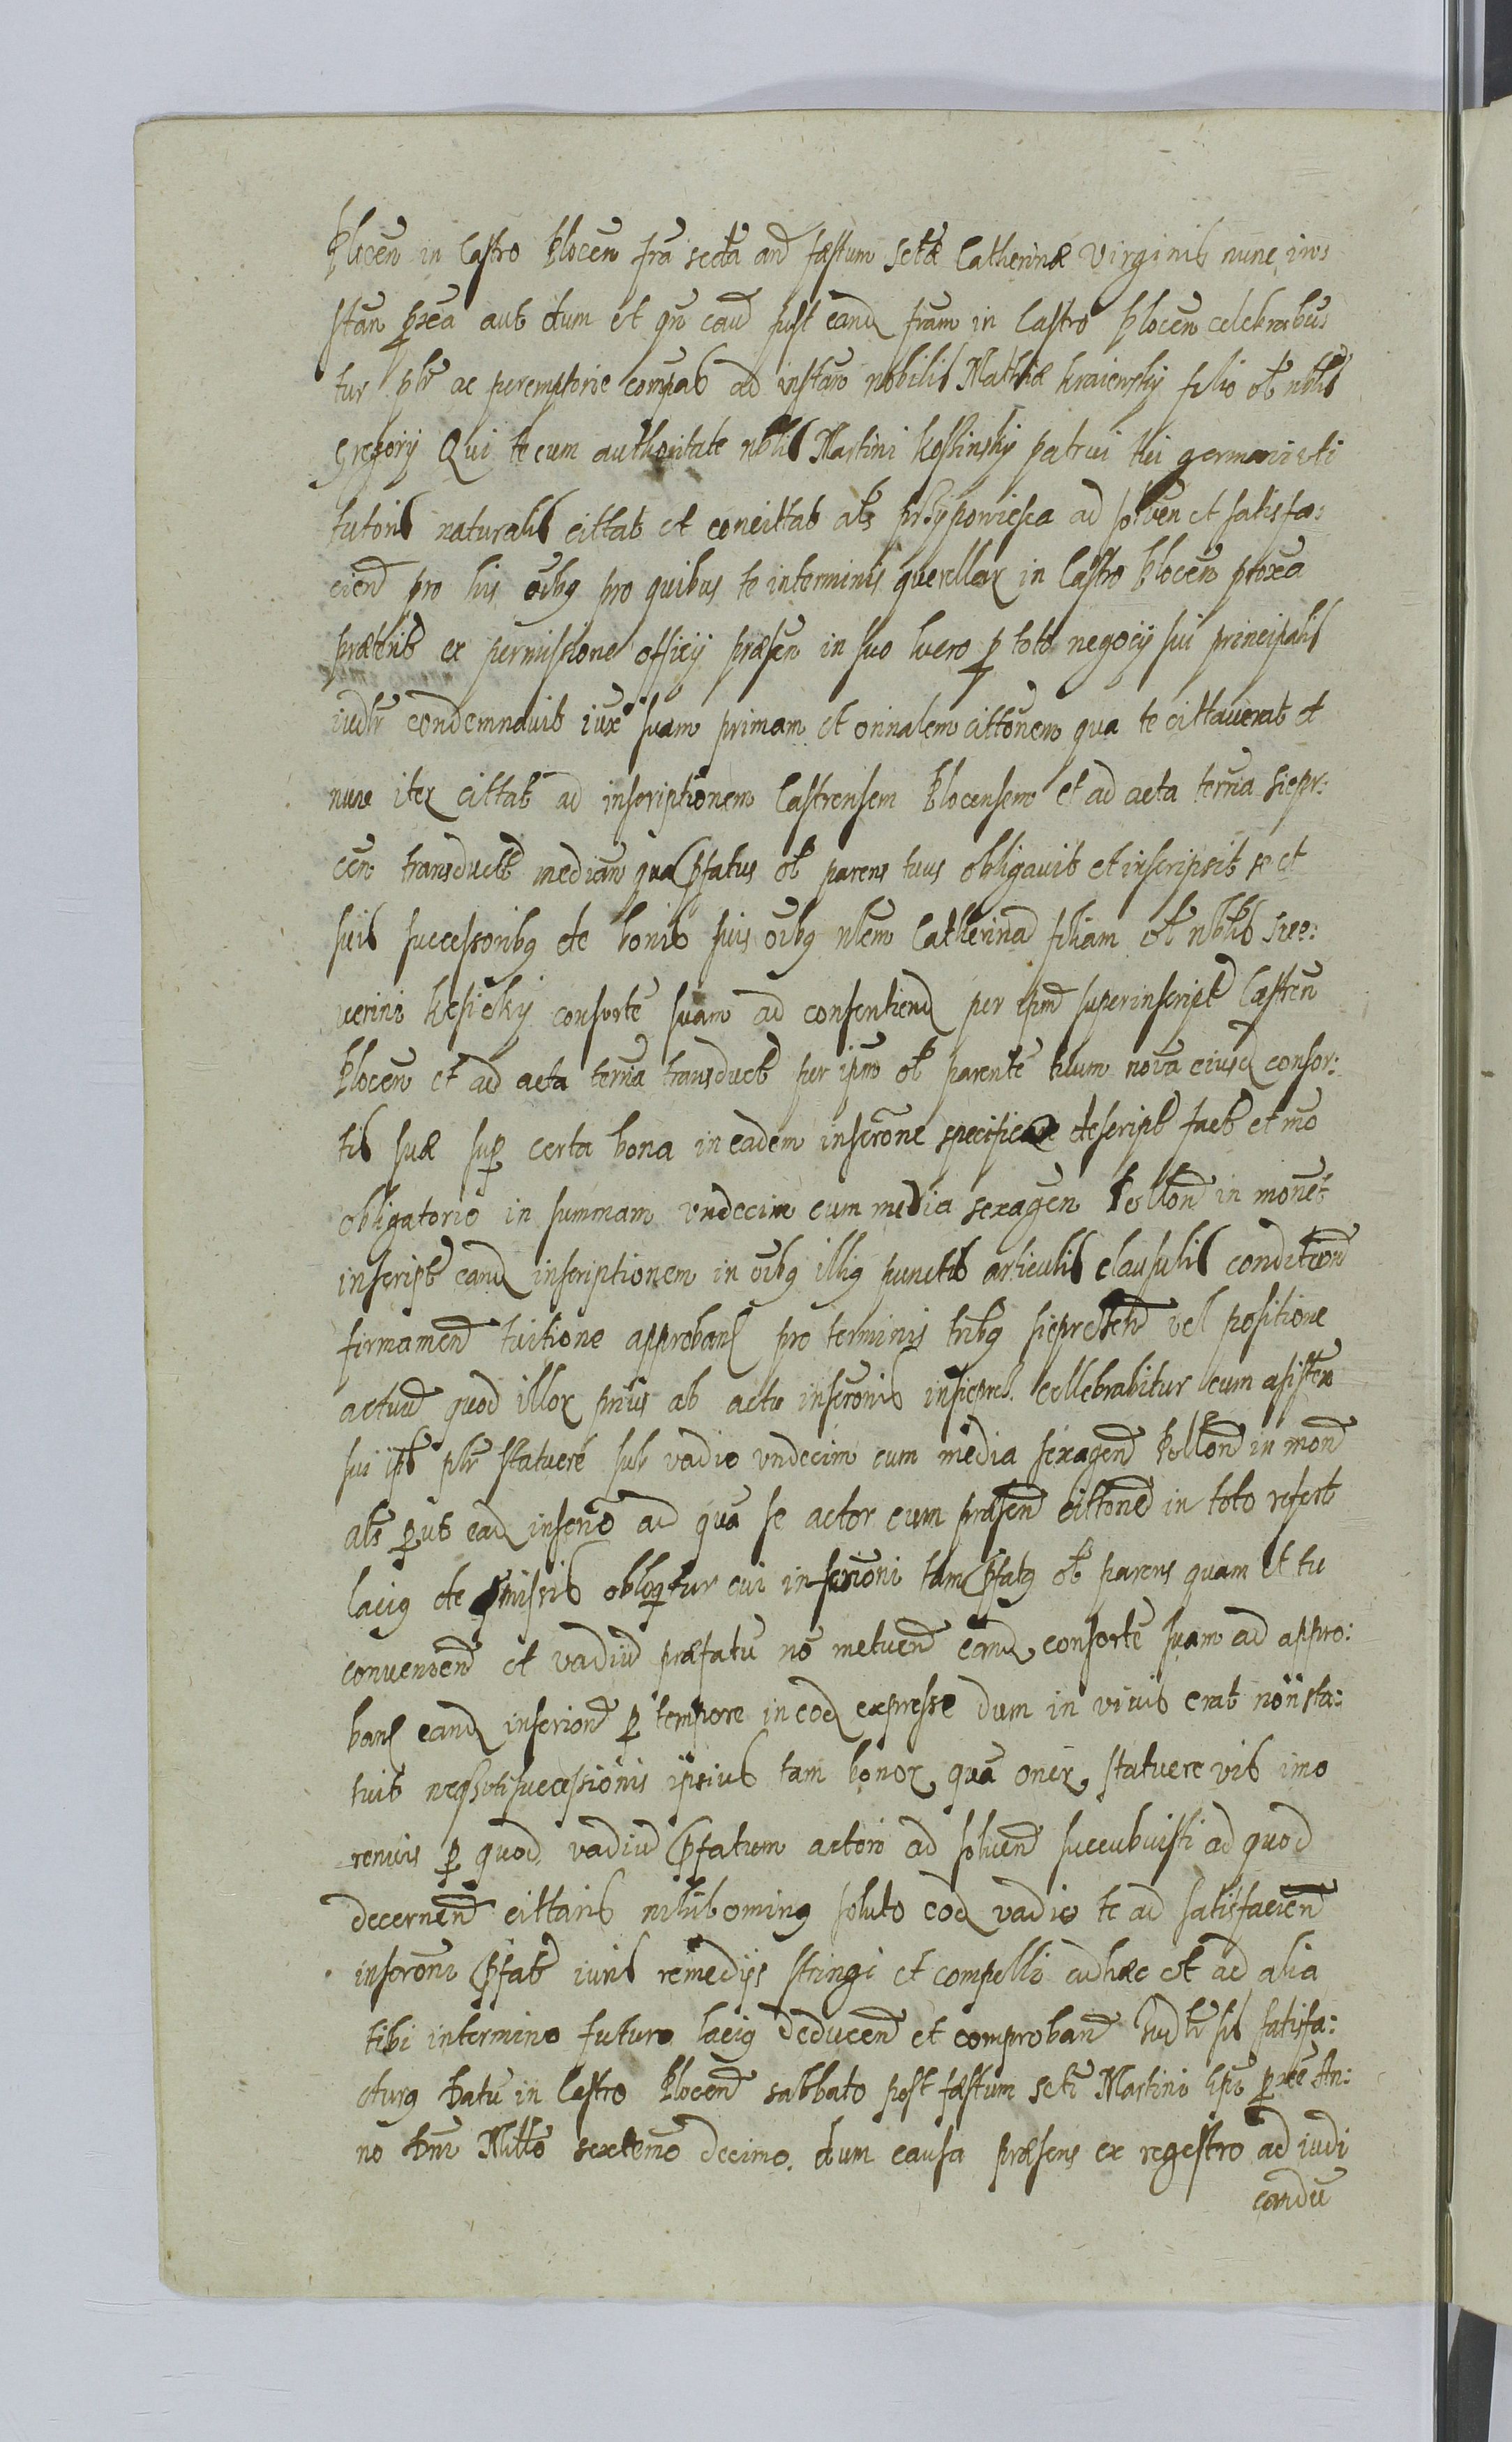 Plocen in Castro Plocen fra secda and fæstum sctæ Catherinæ Virginis nunc ins
stan proxa aut dum et qn caud post eand fram in Castro Plocen celebrabus
tur plr ac peremptorie compas ad instan nobilis Mathiæ Kraiewsky filio ol nblis
Gregory Qui te cum authoritate nblis Martini patrui tui germani uti
tutoris naturalis cittat et concittat als przypowiesca ad solven et satisfa:
ciend pro his oibq pro quibus te interminis querellar in Castro Plocen proxa
præterit ex permissione officij præsen in suo lucro p toto negocij sui principalis
iudlr condemnavit iux suam primam et orinalem cittonem qua te cittaverat et
nunc iter cittat ad inscriptionem Castrensem Plocensem et ad acta terria Siepr:
cen transduct median qua pfatus ol parens tuus obligavit et inscripsit se et
suis successoribq de bonis suis oibq nlem Catherina filiam ol nblis See:
verini consorte suam ad consentiend per ipm superinscript Castren
Plocen et ad acta terria transduct per ipm ol parente tuum nova eiusd consor:
tis suæ sup certa bona in eadem inscrone specifice descript fact et mo
obligatorio in summam undecim cum media sexagen Pollon in monet
inscript eand inscriptionem in oibq illiq punctis articulis clausulis condition
firmamen tuitione approband pro terminis tribq vel positione
actuu quod illor prius ab actu inscronis insieprc. cellebrabitur cum asisten
sui ipl plr statuere sub vadio undecim cum media sexagen Pollon in mon
als put ead inscrio ad qua se actor cum præsen cittone in toto refert
laciq de pmissis obloqtur cui inscrioni tam pfatq ol parens quam et tu
convenien et vadiu præfatu no metuen eand consorte suam ad appro:
band eand inscrione p tempore in eod expresse dum in vivis erat non sta:
tuit neqz uti successionis ipsius tam bonor qua oner statuere vis imo
renuis p quod vadiu pfatum actori ad solvend succubuisti ad quod
decernend cittaris nihilominq soluto eod vadio te ad satisfaciend
inscroni pfat iuris remedijs stringi et compelli adhæc et ad alia
tibi intermino futuro laciq deducend et comproband iudlr sis satisfa:
cturq Datu in Castro Plocen sabbato post fæstum scti Martini Epi pxe An:
no Dni Millo sextemo decimo. Dum causa præsens ex regestro ad iudi
candu